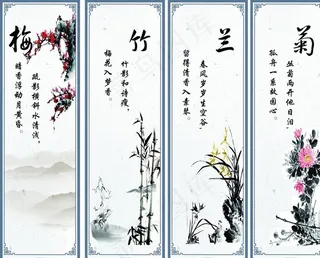 梅
疏影横斜水清浅，
暗香浮动月黄昏。
竹
竹影和诗瘦，
梅花入梦香。
兰
春风岁岁生空谷，
留得清香入素琴。
菊
丛菊两开他日泪，
孤舟一系故园心。